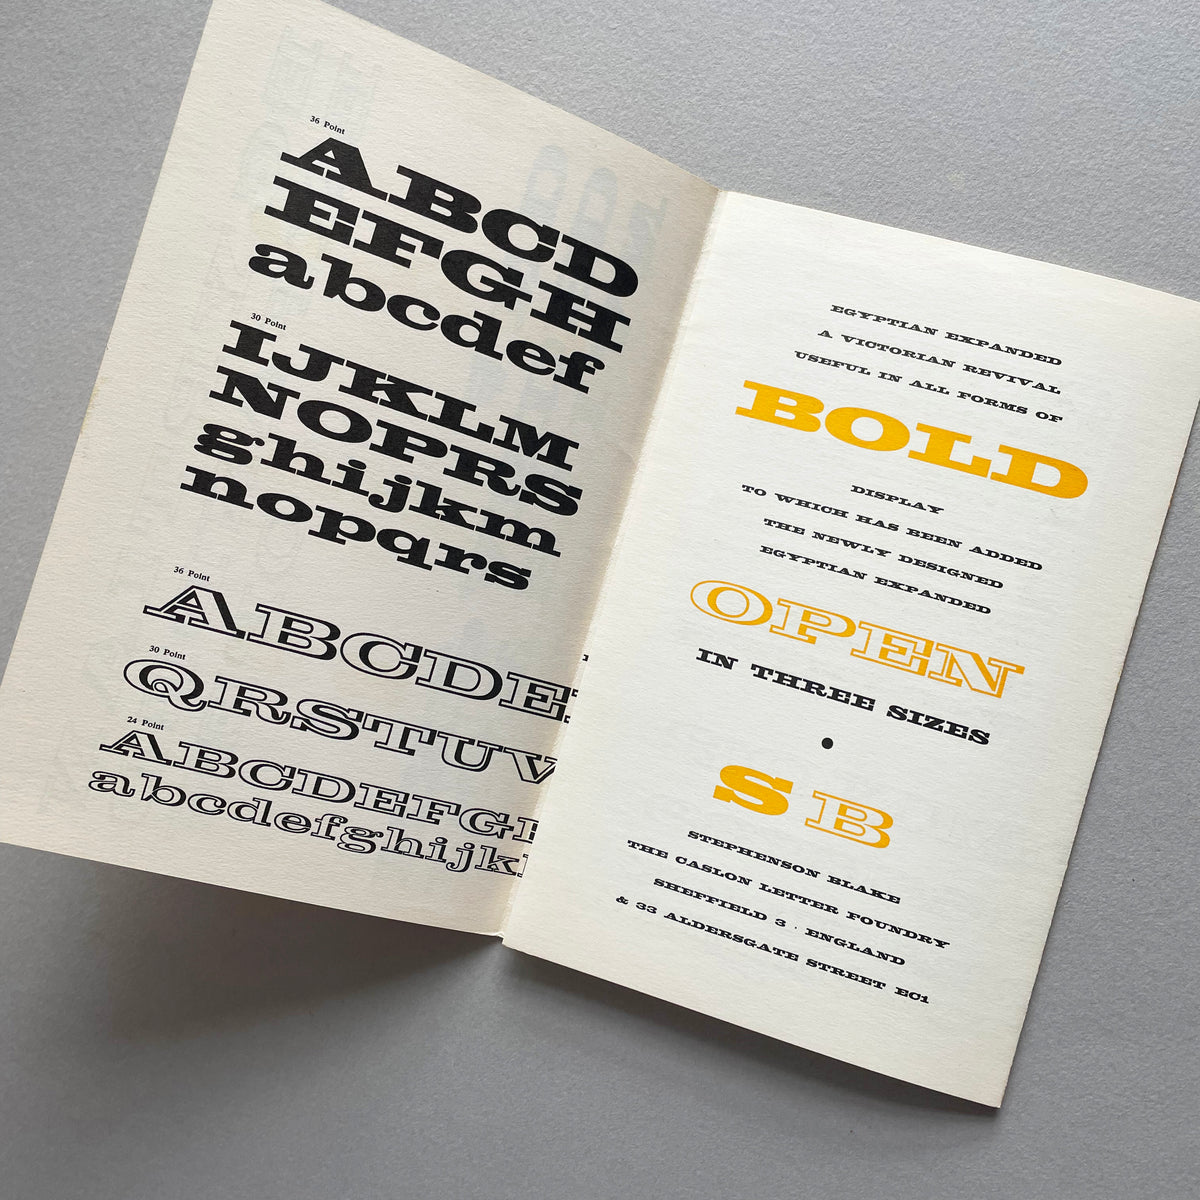 36 Point
ABCD
EFGH
abcdef
30 Point
IJKLM
NOPRS
ghijkm
nopqrs
36 Point
ABCDE
30 Point
QRSTUV
24 Point
ABCDEFG
abcdefghijk
EGYPTIAN EXPANDED
A VICTORIAN REVIVAL
USEFUL IN ALL FORMS OF
BOLD
DISPLAY
TO WHICH HAS BEEN ADDED
THE NEWLY DESIGNED
EGYPTIAN EXPANDED
OPEN
IN THREE SIZES
S B
STEPHENSON BLAKE
THE CASLON LETTER FOUNDRY
SHEFFIELD 3 · ENGLAND
& 33 ALDERSGATE STREET EC1